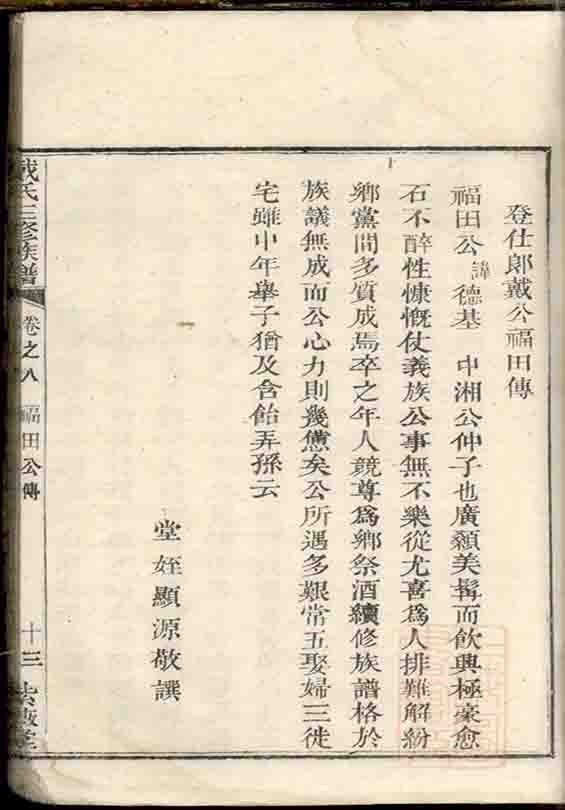 登仕郎戴公福田傳
福田公諱德基　中湘公仲子也廣顙美髯而飲興極豪愈
石不醉性慷慨仗義族公事無不樂從尤喜爲人排難解紛
鄉黨間多質成焉卒之年人競尊爲鄉祭酒續修族譜格於
族議無成而公心力則幾憊矣公所遇多艱常五娶婦三徙
宅雖中年舉子猶及含飴弄孫云
堂姪顯源敬譔
戴氏三修族譜
卷之八　福田公傳
十三